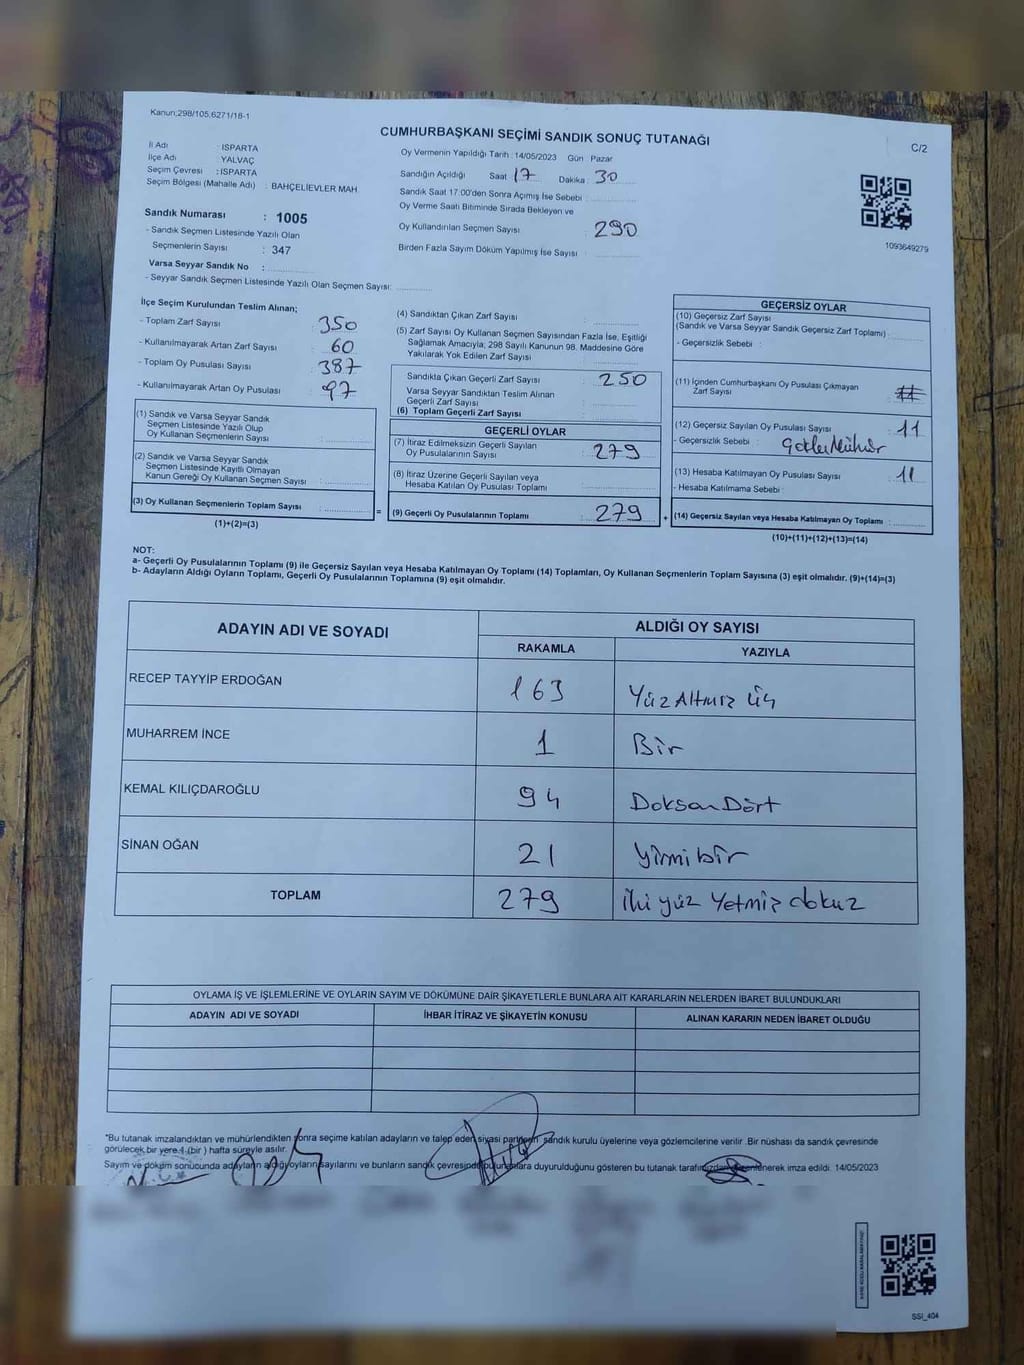 Kanun;298/105,6271/18-1
CUMHURBAŞKANI SEÇİMİ SANDIK SONUÇ TUTANAĞI
C/2
İl Adı : ISPARTA
İlçe Adı : YALVAÇ
Seçim Çevresi : ISPARTA
Seçim Bölgesi (Mahalle Adı) : BAHÇELİEVLER MAH.
Sandık Numarası : 1005
- Sandık Seçmen Listesinde Yazılı Olan
Seçmenlerin Sayısı : 347
Varsa Seyyar Sandık No :
- Seyyar Sandık Seçmen Listesinde Yazılı Olan Seçmen Sayısı:
Oy Vermenin Yapıldığı Tarih : 14/05/2023 Gün Pazar
Sandığın Açıldığı Saat 17 Dakika : 30
Sandık Saat 17:00'den Sonra Açımış İse Sebebi :
Oy Verme Saati Bitiminde Sırada Bekleyen ve
Oy Kullandırılan Seçmen Sayısı : 290
Birden Fazla Sayım Döküm Yapılmış İse Sayısı :
1093649279
İlçe Seçim Kurulundan Teslim Alınan;
- Toplam Zarf Sayısı : 350
- Kullanılmayarak Artan Zarf Sayısı : 60
- Toplam Oy Pusulası Sayısı : 387
- Kullanılmayarak Artan Oy Pusulası : 97
(1) Sandık ve Varsa Seyyar Sandık
Seçmen Listesinde Yazılı Olup
Oy Kullanan Seçmenlerin Sayısı :
(2) Sandık ve Varsa Seyyar Sandık
Seçmen Listesinde Kayıtlı Olmayan
Kanun Gereği Oy Kullanan Seçmen Sayısı :
(3) Oy Kullanan Seçmenlerin Toplam Sayısı :
(1)+(2)=(3)
=
(4) Sandıktan Çıkan Zarf Sayısı :
(5) Zarf Sayısı Oy Kullanan Seçmen Sayısından Fazla İse, Eşitliği
Sağlamak Amacıyla; 298 Sayılı Kanunun 98. Maddesine Göre
Yakılarak Yok Edilen Zarf Sayısı :
Sandıkta Çıkan Geçerli Zarf Sayısı : 250
Varsa Seyyar Sandıktan Teslim Alınan
Geçerli Zarf Sayısı :
(6) Toplam Geçerli Zarf Sayısı :
GEÇERLİ OYLAR
(7) İtiraz Edilmeksizin Geçerli Sayılan
Oy Pusulalarının Sayısı : 279
(8) İtiraz Üzerine Geçerli Sayılan veya
Hesaba Katılan Oy Pusulası Toplamı :
(9) Geçerli Oy Pusulalarının Toplamı : 279
+
GEÇERSİZ OYLAR
(10) Geçersiz Zarf Sayısı
(Sandık ve Varsa Seyyar Sandık Geçersiz Zarf Toplamı) :
- Geçersizlik Sebebi :
(11) İçinden Cumhurbaşkanı Oy Pusulası Çıkmayan
Zarf Sayısı :
(12) Geçersiz Sayılan Oy Pusulası Sayısı : 11
- Geçersizlik Sebebi :
(13) Hesaba Katılmayan Oy Pusulası Sayısı : 11
- Hesaba Katılmama Sebebi
(14) Geçersiz Sayılan veya Hesaba Katılmayan Oy Toplamı :
(10)+(11)+(12)+(13)=(14)
NOT:
a- Geçerli Oy Pusulalarının Toplamı (9) ile Geçersiz Sayılan veya Hesaba Katılmayan Oy Toplamı (14) Toplamları, Oy Kullanan Seçmenlerin Toplam Sayısına (3) eşit olmalıdır. (9)+(14)=(3)
b- Adayların Aldığı Oyların Toplamı, Geçerli Oy Pusulalarının Toplamına (9) eşit olmalıdır.
ADAYIN ADI VE SOYADI
ALDIĞI OY SAYISI
RAKAMLA YAZIYLA
RECEP TAYYİP ERDOĞAN 163 Yüz Altmış Üç
MUHARREM İNCE 1 Bir
KEMAL KILIÇDAROĞLU 94 Doksan Dört
SİNAN OĞAN 21 Yirmi bir
TOPLAM 279 iki yüz Yetmiş dokuz
OYLAMA İŞ VE İŞLEMLERİNE VE OYLARIN SAYIM VE DÖKÜMÜNE DAİR ŞİKAYETLERLE BUNLARA AİT KARARLARIN NELERDEN İBARET BULUNDUKLARI
ADAYIN ADI VE SOYADI İHBAR İTİRAZ VE ŞİKAYETİN KONUSU ALINAN KARARIN NEDEN İBARET OLDUĞU
"Bu tutanak imzalandıktan ve mühürlendikten sonra seçime katılan adayların ve talep eden siyasi partilerin sandık kurulu üyelerine veya gözlemcilerine verilir .Bir nüshası da sandık çevresinde
görülecek bir yere 1 (bir ) hafta süreyle asılır.
Sayım ve döküm sonucunda adayların aldığı oyların sayılarını ve bunların sandık çevresinde duyurulduğunu gösteren bu tutanak imza edildi. 14/05/2023
SSİ_404